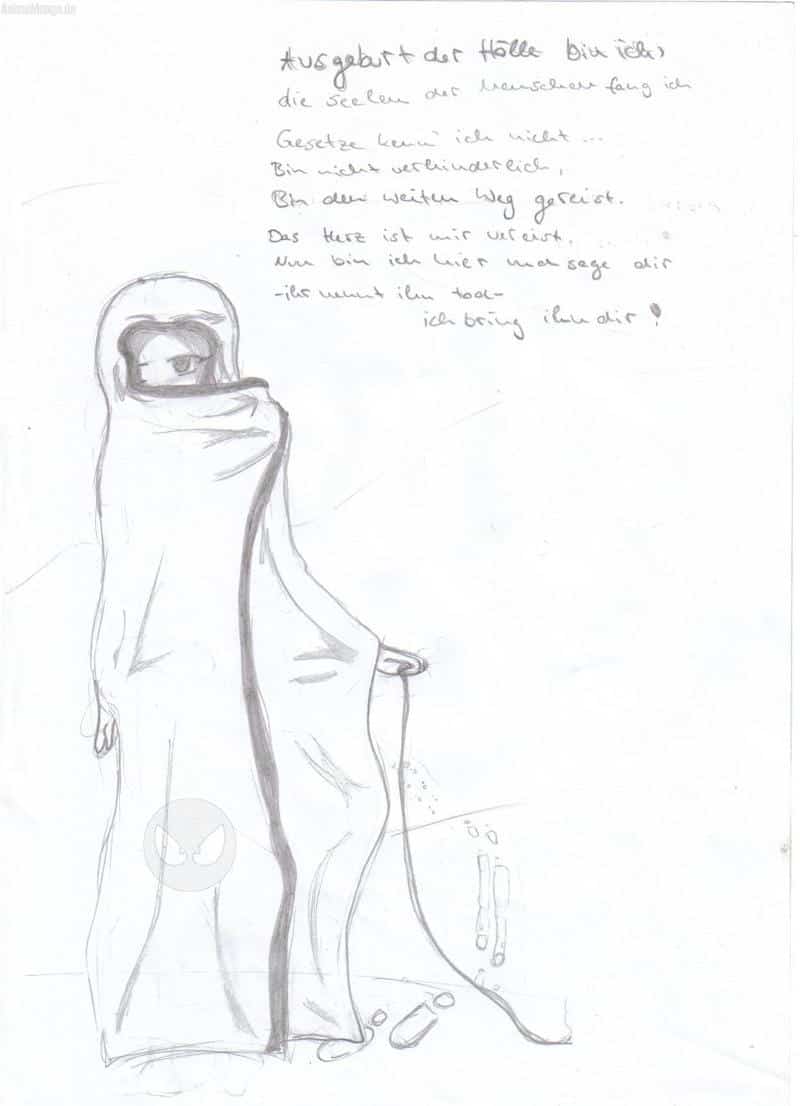 AnimeManga.de
Ausgeburt der Hölle bin ich,
die seelen der Menschen fang ich
Gesetze kenn' ich nicht...
Bin nicht verhinderlich,
Bin den weiten Weg gereist.
Das Herz ist mir vereist.
Nun bin ich hier und sage dir
-ihr nennt ihn tod-
ich bring ihn dir!